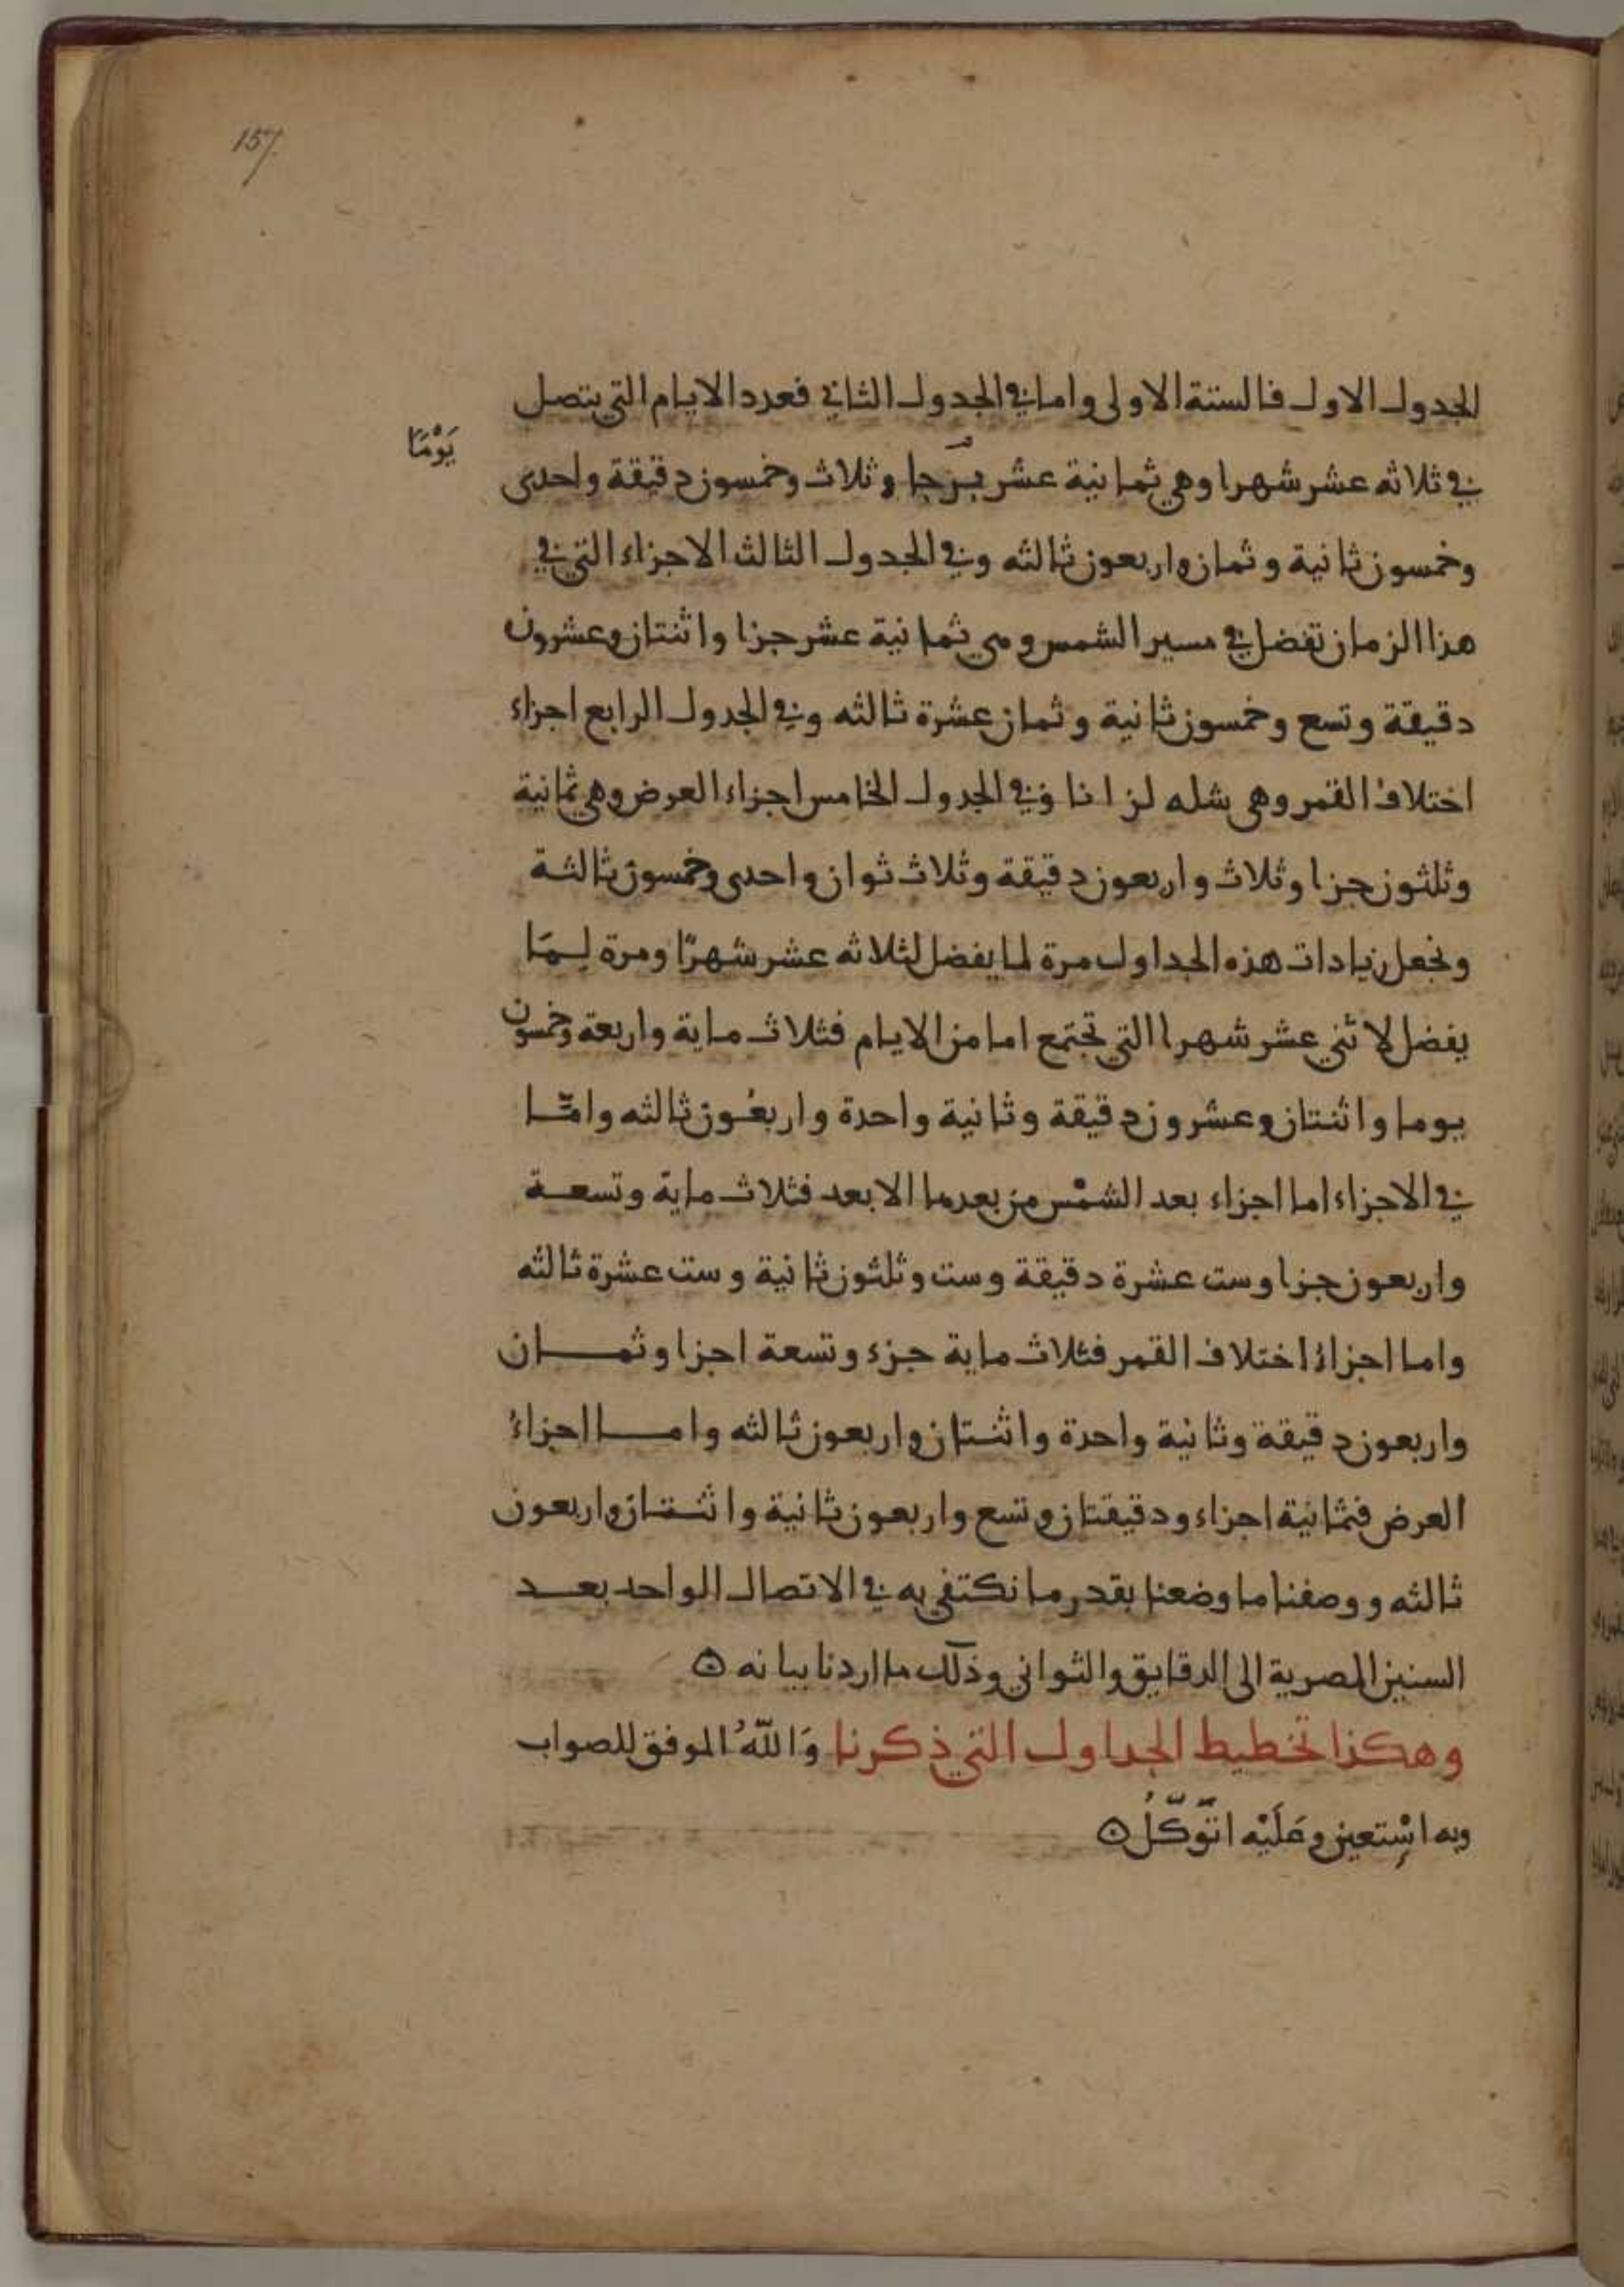 157
الجدول الاول فالستة الاولى واما في الجدول الثاني فعدد الايام التي يتصل
يَوْمَا
في ثلاثه عشر شهرا وهي ثمانية عشر برجا وثلاث وخمسون دقيقة واحدى
وخمسون ثانية وثمان واربعون ثالثه وفي الجدول الثالث الاجزاء التي في
هذا الزمان تفضل في مسير الشمس وهي ثمانية عشر جزا واثنتان وعشرون
دقيقة وتسع وخمسون ثانية وثمان عشرة ثالثه وفي الجدول الرابع اجزاء
اختلاف القمر وهى وفي الجدول الخامس اجزاء العرض وهي ثمانية
وثلثون جزا وثلاث واربعون دقيقة وثلاث ثوان واحدى وخمسون ثالثة
ونجعل زيادات هذه الجداول مرة لما يفضل لثلاثه عشر شهرًا ومرة لِمَا
يفضل لاثني عشر شهرا التي تجتمع اما من الايام فثلاث ماية واربعة وخمسون
يوما واثنتان وعشرون دقيقة وثانية واحدة واربعُون ثالثه وامّا
في الاجزاء اما اجزاء بعد الشمْس من بعدها الابعد فثلاث ماية وتسعة
واربعون جزا وست عشرة دقيقة وست وثلثون ثانية وست عشرة ثالثه
واما اجزاءُ اختلاف القمر فثلاث ماية جزء وتسعة اجزا وثمان
واربعون دقيقة وثانية واحدة واثنتان واربعون ثالثه واما اجزاءُ
العرض فثمانية اجزاء ودقيقتان وتسع واربعون ثانية واثنتان واربعون
ثالثه ووصفنا ما وضعنا بقدر ما نكتفي به في الاتصال الواحد بعد
السنين المصرية الى الدقايق والثواني وذلك ما اردنا بيانه ۞
وهكذا تخطيط الجداول التي ذكرنا وَاللّهُ الموفق للصواب
وبه اسْتعين وعَلَيْه اتوّكّلُ ۞